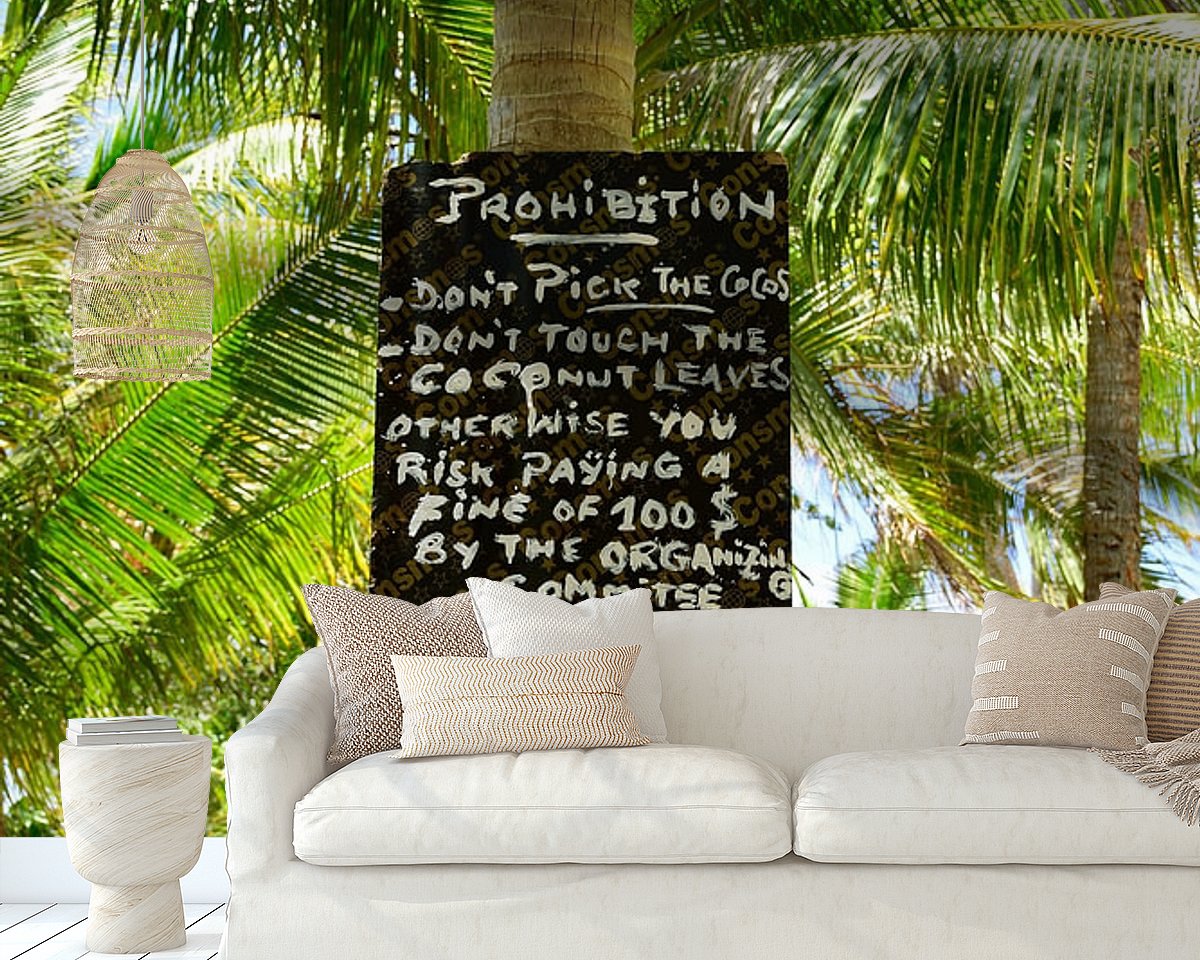 PROHIBITION
- DON'T PICK THE COCOS
- DON'T TOUCH THE
COCONUT LEAVES
OTHERWISE YOU
RISK PAYING A
FINE OF 100 $
BY THE ORGANIZING
COMMITEE